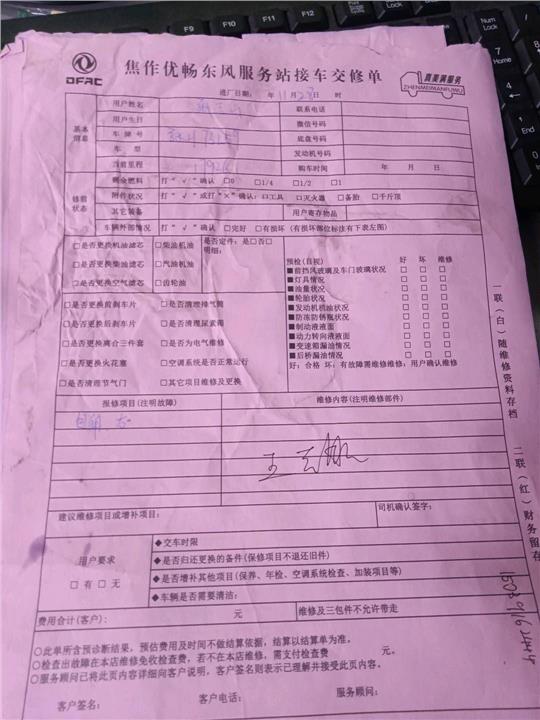 DFAC
焦作优畅东风服务站接车交修单
真美满服务
ZHENMEIMANFUWU
进厂日期： 年11月28日 时
基本信息
用户姓名 联系电话
用户生日 微信号码
车牌号 底盘号码
车型 发动机号码
当前里程 购车时间 年 月 日
修前状态
剩余燃料 打“√”确认 □0 □1/4 □1/2 □1
附件状况 打“√”或打“×”确认：□工具 □灭火器 □备胎 □千斤顶
其它装备 用户寄存物品
车辆外部情况 打“√”确认 □完好 □有损坏（有损坏部位标注有下表左图）
□是否更换机油滤芯 □柴油机油 是否定件：是□否□
明细：
□是否更换柴油滤芯 □汽油机油
□是否更换空气滤芯 □齿轮油
□是否更换前刹车片 □是否清理排气筒
□是否更换后刹车片 □是否清理尿素箱
□是否更换离合三件套 □是否为电气维修
□是否更换火花塞 □空调系统是否正常运行
□是否清理节气门 □其它项目维修及更换
预检(自视) 好 坏 维修
■前挡风玻璃及车门玻璃状况
■灯具情况
■油量状况
■轮胎状况
■发动机机油状况
■防冻防锈瓶状况
■制动液液面
■动力转向液液面
■变速箱漏油情况
■后桥漏油情况
好：合格 坏：有故障需维修维修，用户确认维修
报修项目(注明故障) 维修内容(注明维修部件)
建议维修项目或增补项目： 司机确认签字：
用户要求
□有 □无
◆交车时限
◆是否归还更换的备件(保修项目不退还旧件)
◆是否增补其他项目(保养、年检、空调系统检查、加装项目等)
◆车辆是否需要清油：
费用合计(客户)： 元 维修及三包件不允许带走
○此单所含预诊断结果，预估费用及时间不做结算依据，结算以结算单为准。
○检查出故障在本店维修免收检查费，若不在本店维修，需支付检查费 元。
○服务顾问已将此页内容详细向客户说明，客户签名则表示已理解并接受此页内容。
客户签名： 客户电话： 服务顾问：
一联（白）随维修资料存档 二联（红）财务留存